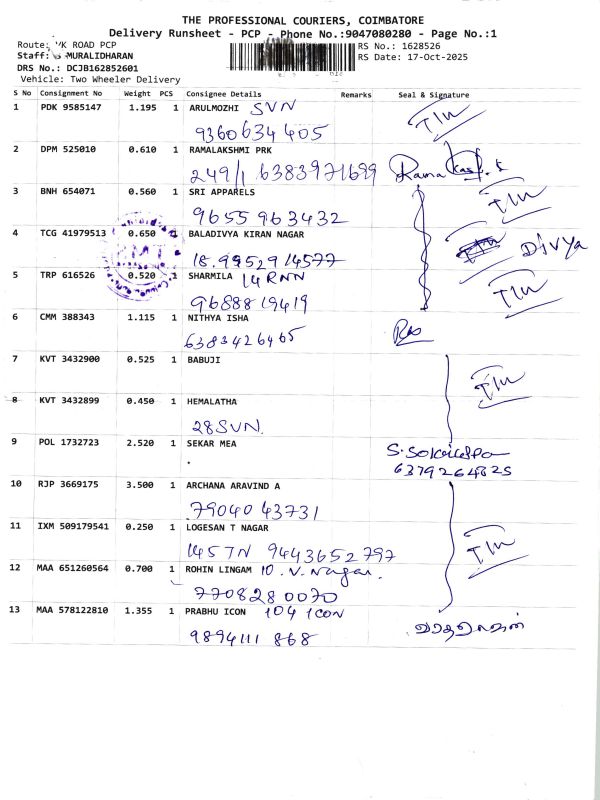 THE PROFESSIONAL COURIERS, COIMBATORE
Delivery Runsheet - PCP - Phone No.:9047080280 - Page No.:1
Route: VK ROAD PCP
RS No.: 1628526
Staff: MURALIDHARAN
RS Date: 17-Oct-2025
DRS No.: DCJB162852601
Vehicle: Two Wheeler Delivery
S No Consignment No Weight PCS Consignee Details Remarks Seal & Signature
1 PDK 9585147 1.195 1 ARULMOZHI SVN
9360634405
2 DPM 525010 0.610 1 RAMALAKSHMI PRK
249/1 6383971699
3 BNH 654071 0.560 1 SRI APPARELS
9655963432
4 TCG 41979513 0.650 1 BALADIVYA KIRAN NAGAR
18. 9952914577 Divya
5 TRP 616526 0.520 1 SHARMILA 14 RNN
9688819419
6 CMM 388343 1.115 1 NITHYA ISHA
6383426465
7 KVT 3432900 0.525 1 BABUJI
8 KVT 3432899 0.450 1 HEMALATHA
28 SVN.
9 POL 1732723 2.520 1 SEKAR MEA
6379264825
10 RJP 3669175 3.500 1 ARCHANA ARAVIND A
79040 43731
11 IXM 509179541 0.250 1 LOGESAN T NAGAR
145 TN 9443652797
12 MAA 651260564 0.700 1 ROHIN LINGAM 10. V. Nagar.
7708280070
13 MAA 578122810 1.355 1 PRABHU ICON 104 ICON
9894111 868